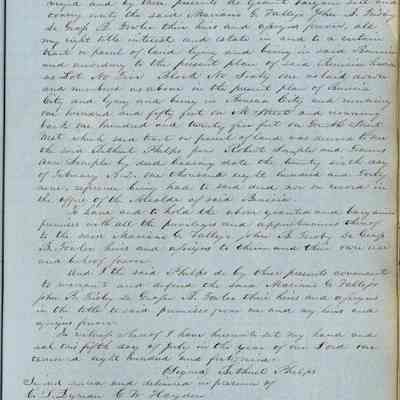 and by these presents do grant bargain sell and
convey unto the said Mariano G Vallejo John B. Frisby
De Graff B. Fowler their heirs and assigns forever, all
my right title interest and estate in and to a certain
tract or parcel of land lying and being in said Benicia
and according to the present plan of said Benicia known
as Lot No Block No Sixty one as laid down
and numbered as above in the present plan of Benicia
City and lying and being in Benicia City and running
one hundred and fifty feet on M Street and running
back one hundred and twenty five feet on Fourth Street
West which said tract or parcel of land was deeded to me
the said Bethuel Phelps from Robert Semple and Frances
Ann Semple by deed bearing date the twenty sixth day
of February A.D. one thousand eight hundred and forty
nine, reference being had to said deed now on record in
the office of the Alcalde of said Benicia.
To have and to hold the above granted and bargained
premises with all the privileges and appurtenances thereof
to the said Mariano G Vallejo John B Frisby De Graff
B. Fowler heirs and assigns to them and their own use
and behoof forever.
And I the said Phelps do by these presents covenant
to warrant and defend the said Mariano G Vallejo
John B. Frisby De Graff B. Fowler their heirs and assigns
in the title to said premises from me and my heirs and
assigns forever.
In witness whereof I have hereunto set my hand and
seal on fifth day of July in the year of our Lord one
thousand eight hundred and forty nine.
Signed Bethuel Phelps
Signed sealed and delivered in presence of
C. W. Hayden